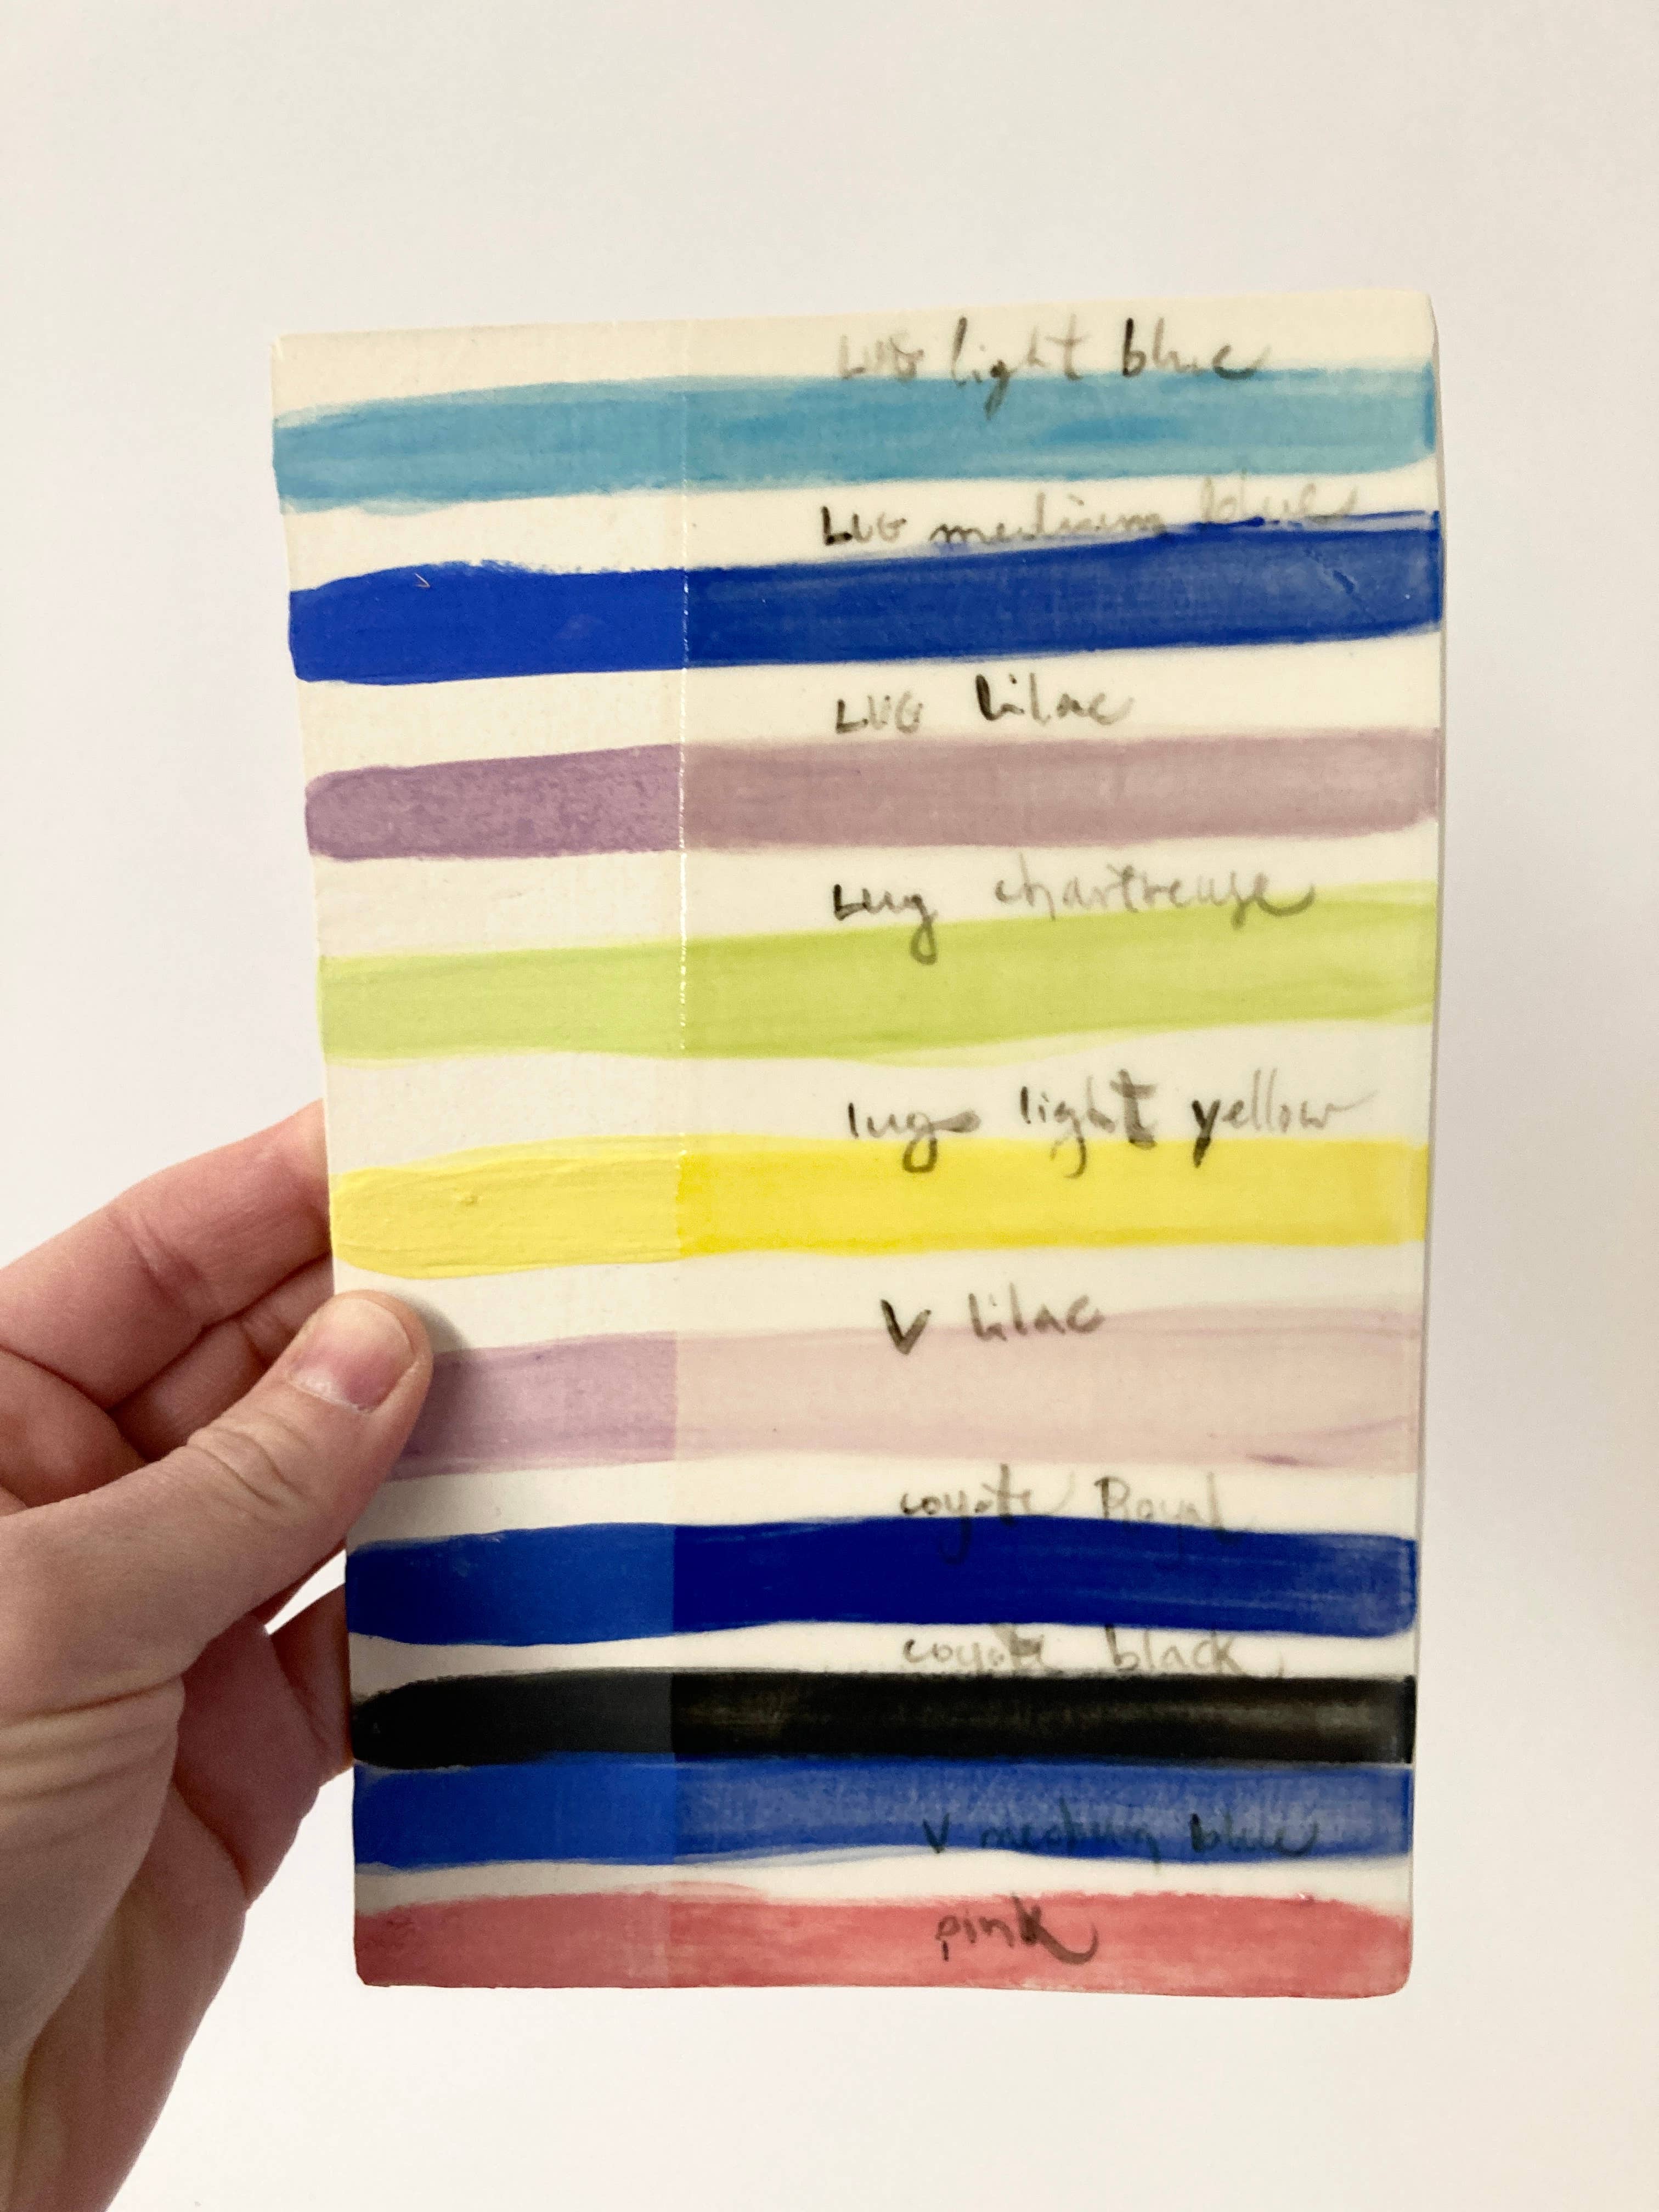 LUG light blue
LUG medium blue
LUG lilac
Lug chartreuse
lug light yellow
V lilac
coyote Royal
coyote black
V medium blue
pink